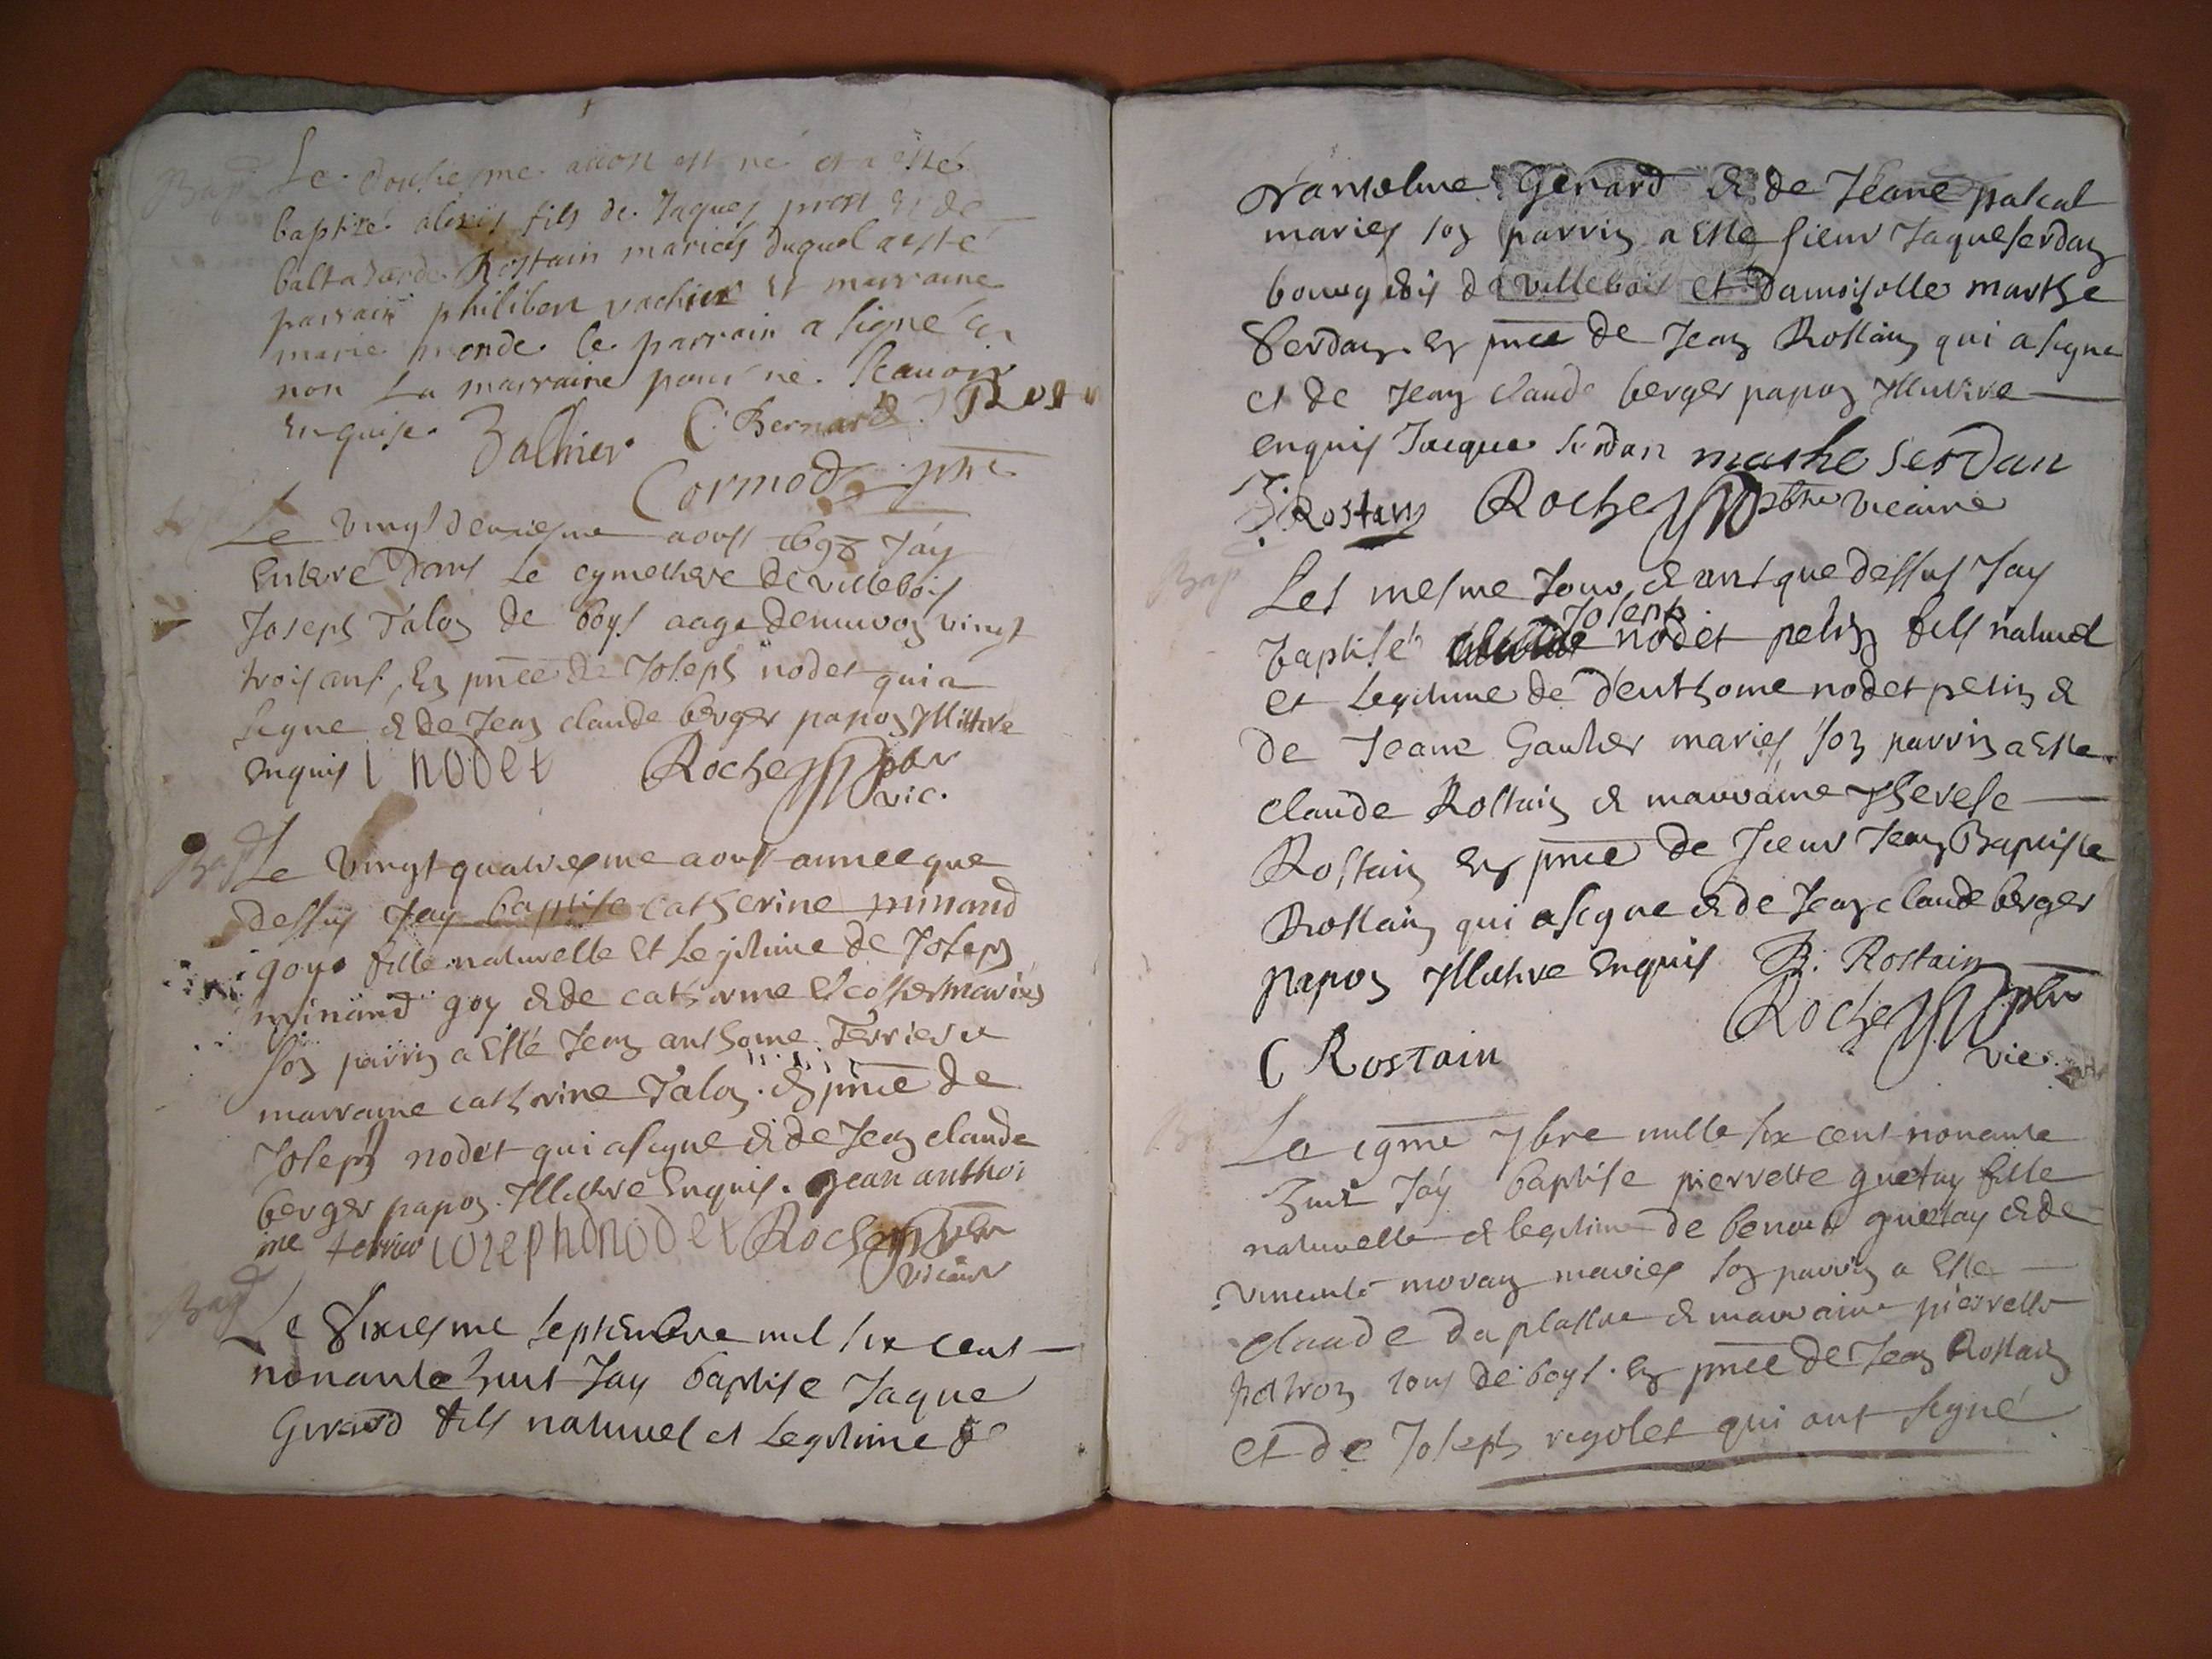 Bap
Le dousiesme aoust est né et a esté
baptizé alexis fils de Jaques pron et de
baltazarde Rostain mariés duquel a esté
parrain philibert vachier et marraine
marie monde le parrain a signé et
non la marraine pour ne scauoir
enquise C Bernard
Cormod ptre
Le vingt deuxiesme aoust 1698 Jay
Enterré dans le cymetiere de villeboys
Joseph Talon de boys aagé denuiron vingt
trois ans, En pnce de Joseph nodet qui a
signe & de Jean claude berger papon Illittire
enquis i nodet Roche pbr
vic.
Bap
Le vingt quatriesme aoust annee que
dessus Jay baptise catherine minand
goy fille naturelle Et Legitime de Joseph
minand goy & de catherine Escosser mariés
son parrin a Esté Jean anthoine Terrier &
marraine catherine Talon. En pnce de
Joseph nodet qui a signe & de Jean claude
berger papon Illittire Enquis. Jean anthoi
ine terrier ioseph nodet Roche pbr
vicaire
Bap
Le Sixiesme septembre mil six cent
nonante huit Jay baptise Jaque
Girard fils naturel et Legitime de
danthelme Gerard & de Jeane pascal
maries son parrin a Este sieur Jaque serdan
bourgeois de villebois et damoiselle marthe
Serdan en pnce de Jean Rostain qui a signe
et de Jean claude berger papon Illitire
enquis Jacque serdan marthe serdan
J. Rostain Roche pbre vicaire
Bap
Les mesme Jour & ant que dessus Jay
Joseph
baptisé nodet petin fils naturel
et Legitime de d'enthoine nodet petin &
de Jeane Gautier maries, son parrin a Este
claude Rostain & marraine Therese
Rostain En pnce de sieur Jean Baptiste
Rostain qui a signe & de Jean claude berger
papon Illitire Enquis B. Rostain
Roche pbr
C Rostain vic.
Le 7bre mille six cent nonante
huit Jay baptise pierrette guetay fille
naturelle & legitime de benoit guetay & de
vincente moran maries son parrin a Este
claude daplastre & marraine pierrette
patron tous de boys. En pnce de Jean Rostain
et de Joseph regolet qui ont signé